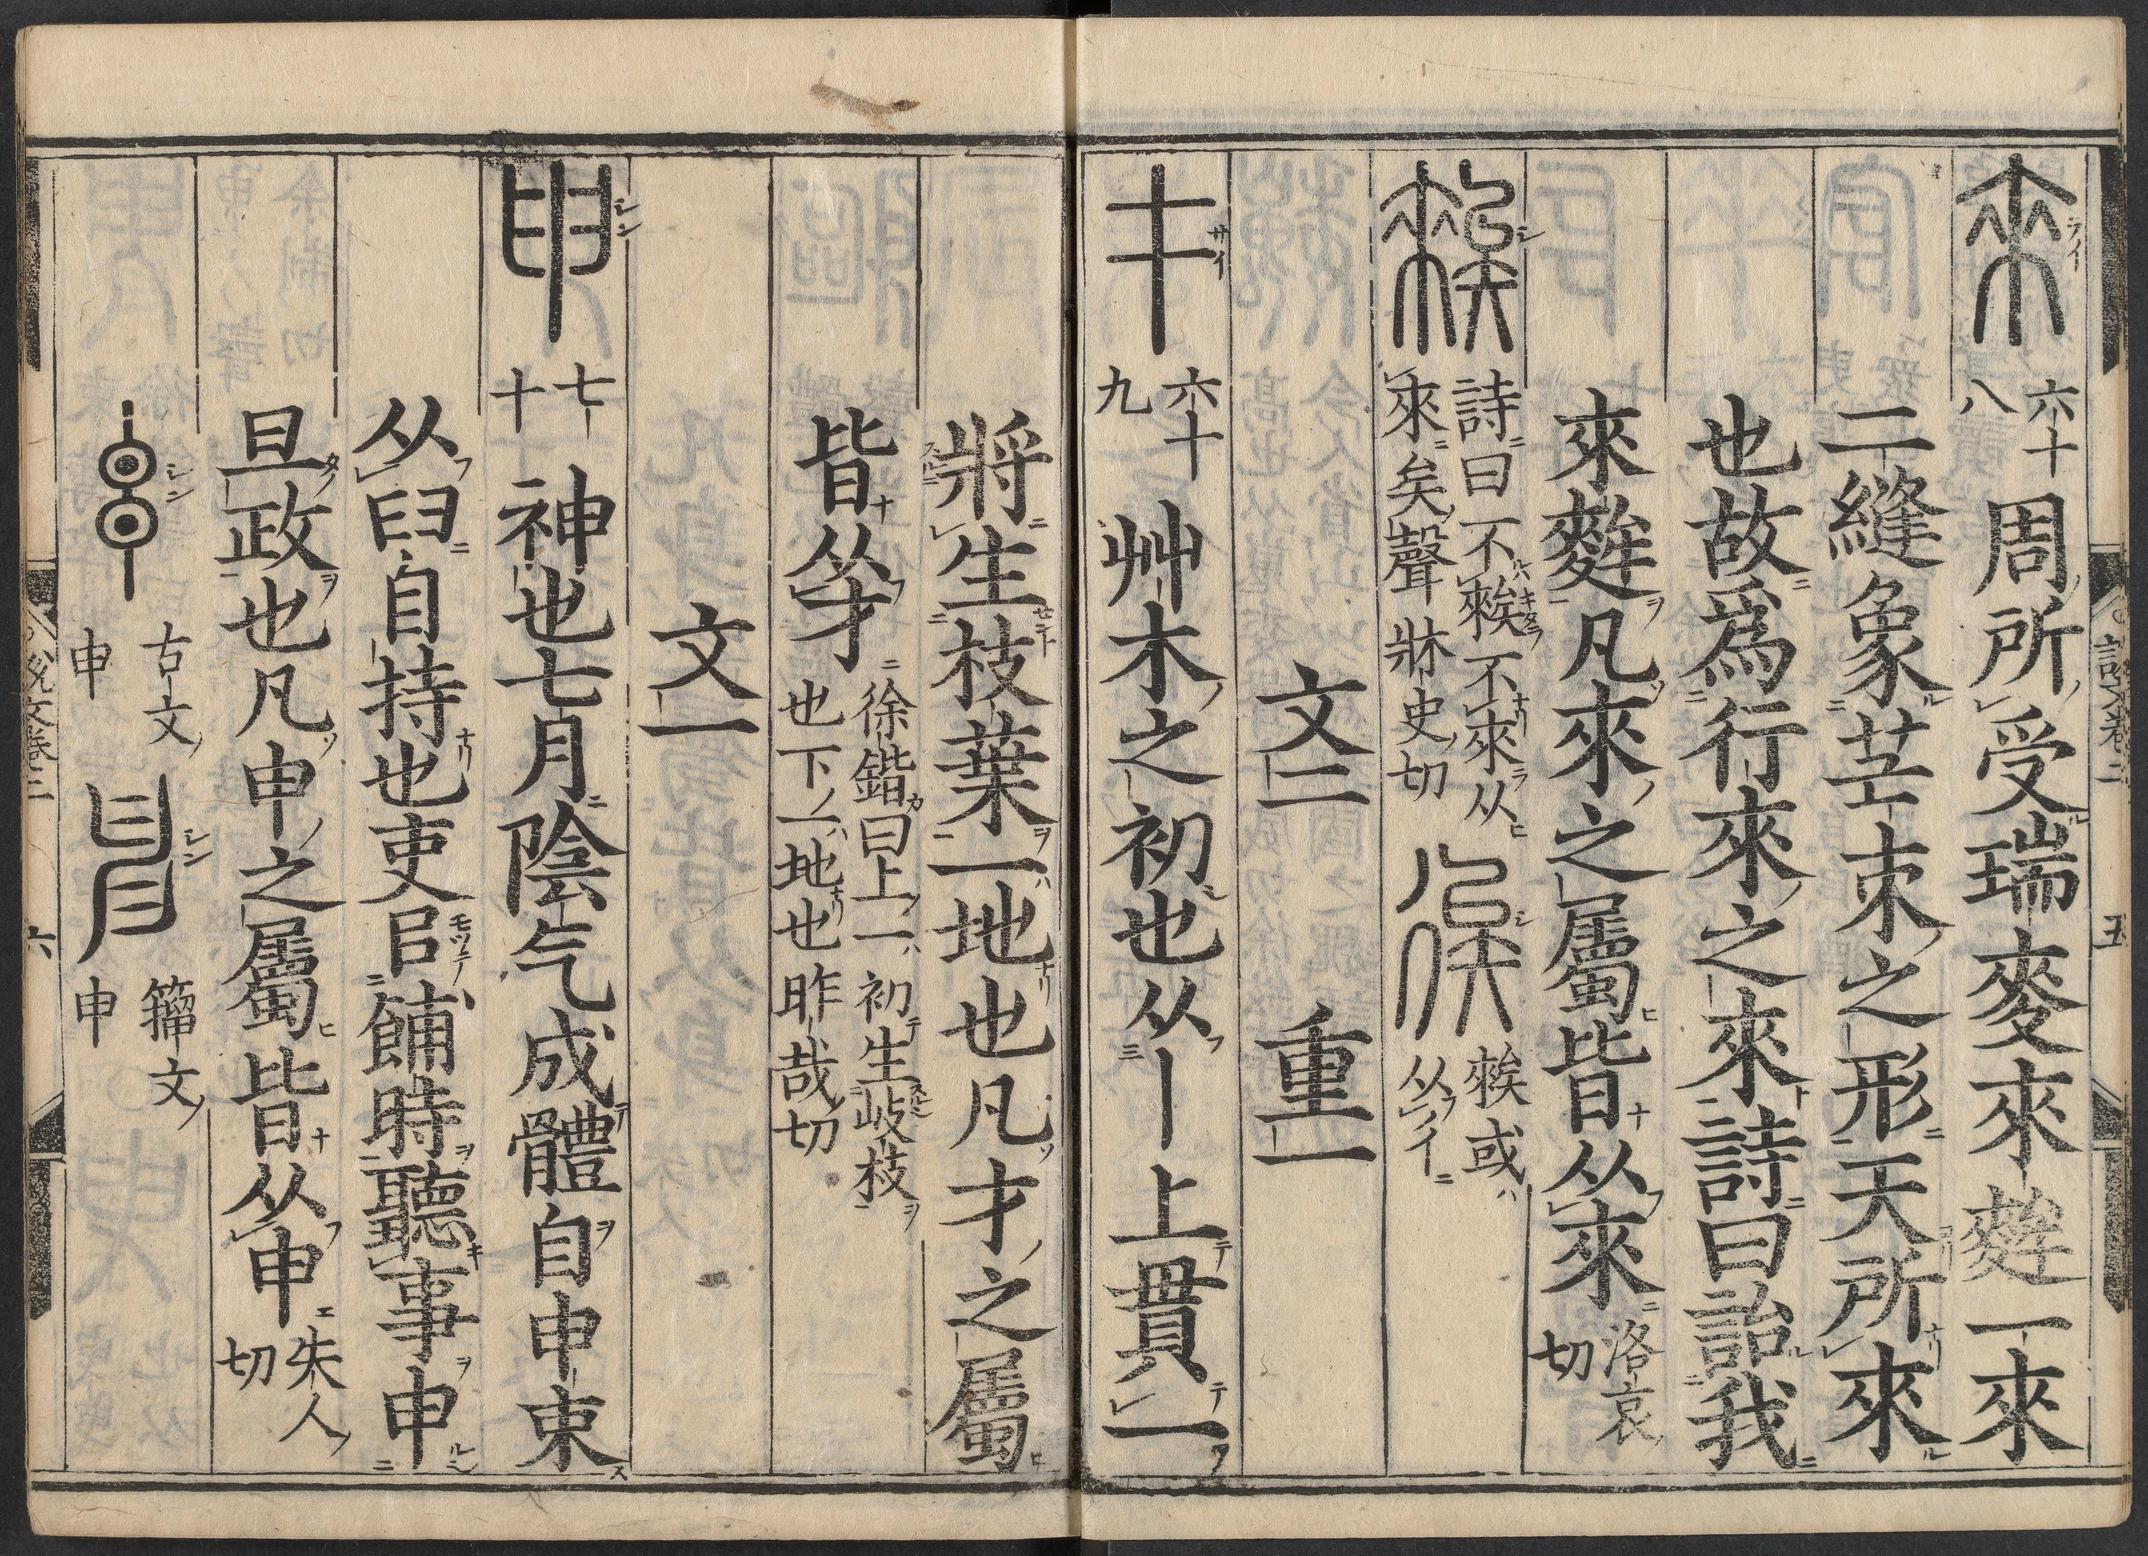 來 六十八 周所受瑞麥來麰一來
二縫象芒朿之形天所來
也故爲行來之來詩曰詒我
來麰凡來之屬皆从來 洛哀切
𥎦 詩曰不𥎦不來从來矣聲牀史切 𥏳 𥎦或从彳
文二 重一
才 六十九 艸木之初也从丨上貫一
將生枝葉一地也凡才之屬
皆从才 徐鍇曰上一初生歧枝也下一地也昨哉切
文一
申 七十 神也七月陰气成體自申束
从𦥑自持也吏㠯餔時聽事申
旦政也凡申之屬皆从申 失人切
古文申 籀文申
說文卷二 五
說文卷二 六